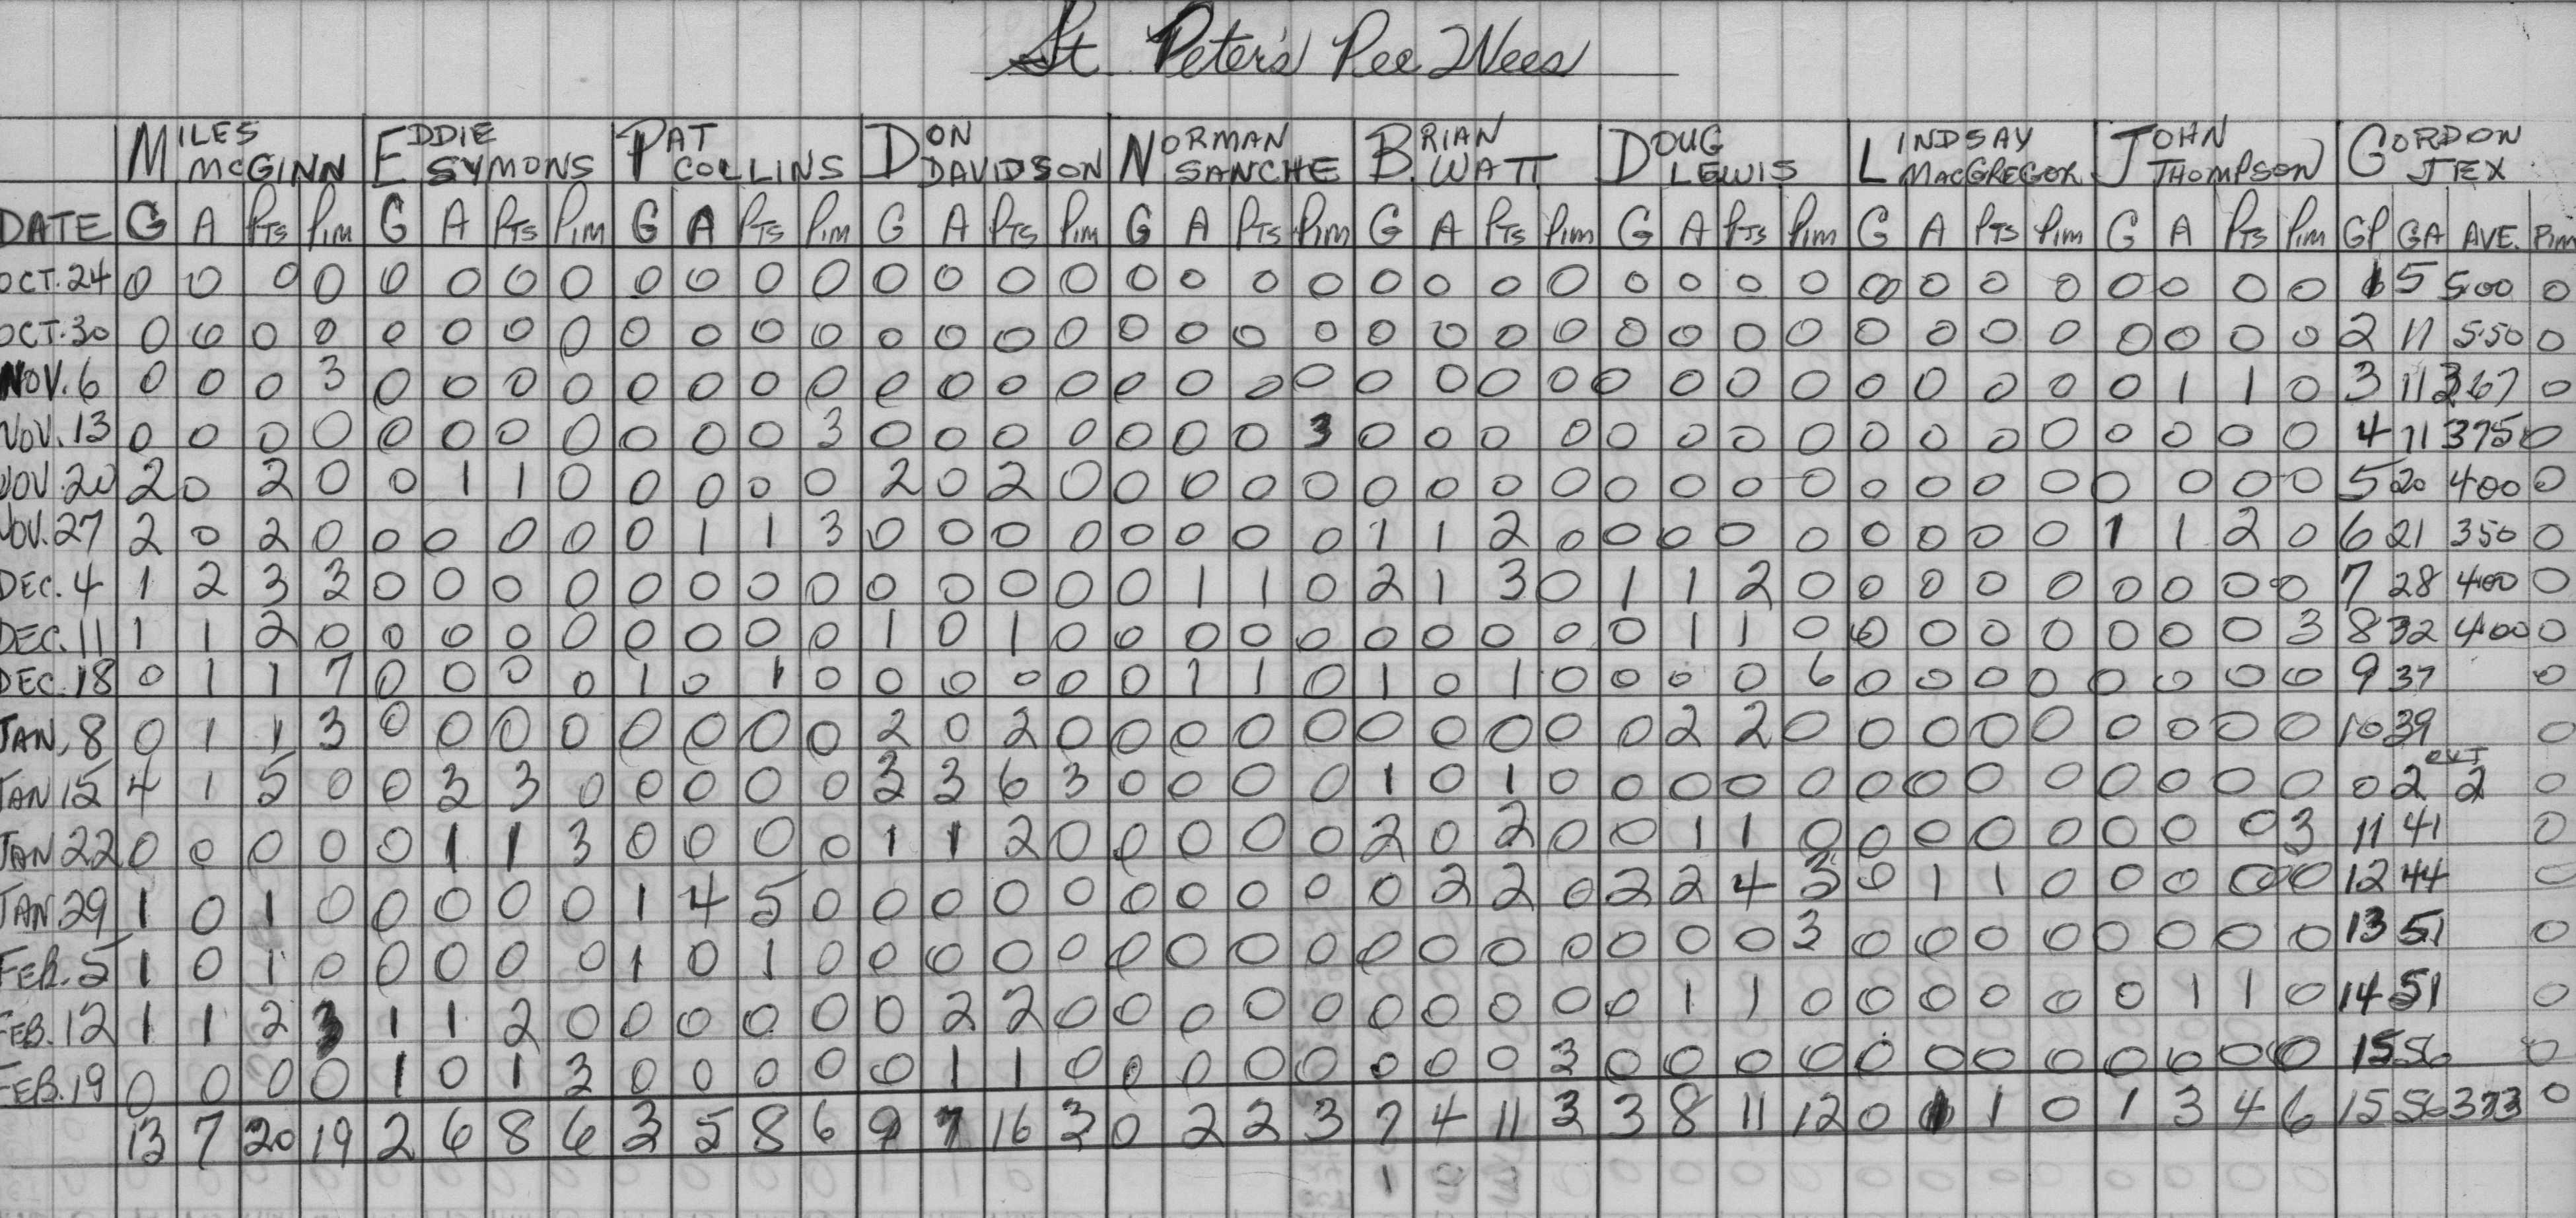 St Peter's Pee Wees
MILES McGINN EDDIE SYMONS PAT COLLINS DON DAVIDSON NORMAN SANCHE BRIAN WATT DOUG LEWIS LINDSAY MACGREGOR JOHN THOMPSON GORDON JEX
DATE G A PTS PIM G A PTS PIM G A PTS PIM G A PTS PIM G A PTS PIM G A PTS PIM G A PTS PIM G A PTS PIM G A PTS PIM GP GA AVE. PIM
OCT.24 0 0 0 0 0 0 0 0 0 0 0 0 0 0 0 0 0 0 0 0 0 0 0 0 0 0 0 0 0 0 0 0 0 0 0 0 1 5 5.00 0
OCT.30 0 0 0 0 0 0 0 0 0 0 0 0 0 0 0 0 0 0 0 0 0 0 0 0 0 0 0 0 0 0 0 0 0 0 0 0 2 11 5.50 0
NOV.6 0 0 0 3 0 0 0 0 0 0 0 0 0 0 0 0 0 0 0 0 0 0 0 0 0 0 0 0 0 0 0 0 0 1 1 0 3 11 367 0
NOV.13 0 0 0 0 0 0 0 0 0 0 0 3 0 0 0 0 0 0 0 3 0 0 0 0 0 0 0 0 0 0 0 0 0 0 0 0 4 11 375 0
NOV.20 2 0 2 0 0 1 1 0 0 0 0 0 2 0 2 0 0 0 0 0 0 0 0 0 0 0 0 0 0 0 0 0 0 0 0 0 5 20 400 0
NOV.27 2 0 2 0 0 0 0 0 0 1 1 3 0 0 0 0 0 0 0 0 1 1 2 0 0 0 0 0 0 0 0 0 1 1 2 0 6 21 350 0
DEC.4 1 2 3 3 0 0 0 0 0 0 0 0 0 0 0 0 0 1 1 0 2 1 3 0 1 1 2 0 0 0 0 0 0 0 0 0 7 28 400 0
DEC.11 1 1 2 0 0 0 0 0 0 0 0 0 1 0 1 0 0 0 0 0 0 0 0 0 0 1 1 0 0 0 0 0 0 0 0 3 8 32 400 0
DEC.18 0 1 1 7 0 0 0 0 1 0 1 0 0 0 0 0 0 1 1 0 1 0 1 0 0 0 0 6 0 0 0 0 0 0 0 0 9 37 0
JAN.8 0 1 1 3 0 0 0 0 0 0 0 0 2 0 2 0 0 0 0 0 0 0 0 0 0 2 2 0 0 0 0 0 0 0 0 0 10 39 0
JAN 15 4 1 5 0 0 3 3 0 0 0 0 0 3 3 6 3 0 0 0 0 1 0 1 0 0 0 0 0 0 0 0 0 0 0 0 0 0 2 OUT 2 0
JAN 22 0 0 0 0 0 1 1 3 0 0 0 0 1 1 2 0 0 0 0 0 2 0 2 0 0 1 1 0 0 0 0 0 0 0 0 3 11 41 0
JAN.29 1 0 1 0 0 0 0 0 1 4 5 0 0 0 0 0 0 0 0 0 0 2 2 0 2 2 4 3 0 1 1 0 0 0 0 0 12 44 0
FEB.5 1 0 1 0 0 0 0 0 1 0 1 0 0 0 0 0 0 0 0 0 0 0 0 0 0 0 0 3 0 0 0 0 0 0 0 0 13 51 0
FEB.12 1 1 2 3 1 1 2 0 0 0 0 0 0 2 2 0 0 0 0 0 0 0 0 0 0 1 1 0 0 0 0 0 0 1 1 0 14 51 0
FEB.19 0 0 0 0 1 0 1 3 0 0 0 0 0 1 1 0 0 0 0 0 0 0 0 3 0 0 0 0 0 0 0 0 0 0 0 0 15 56 0
13 7 20 19 2 6 8 6 3 5 8 6 9 7 16 3 0 2 2 3 7 4 11 3 3 8 11 12 0 1 1 0 1 3 4 6 15 56 373 0